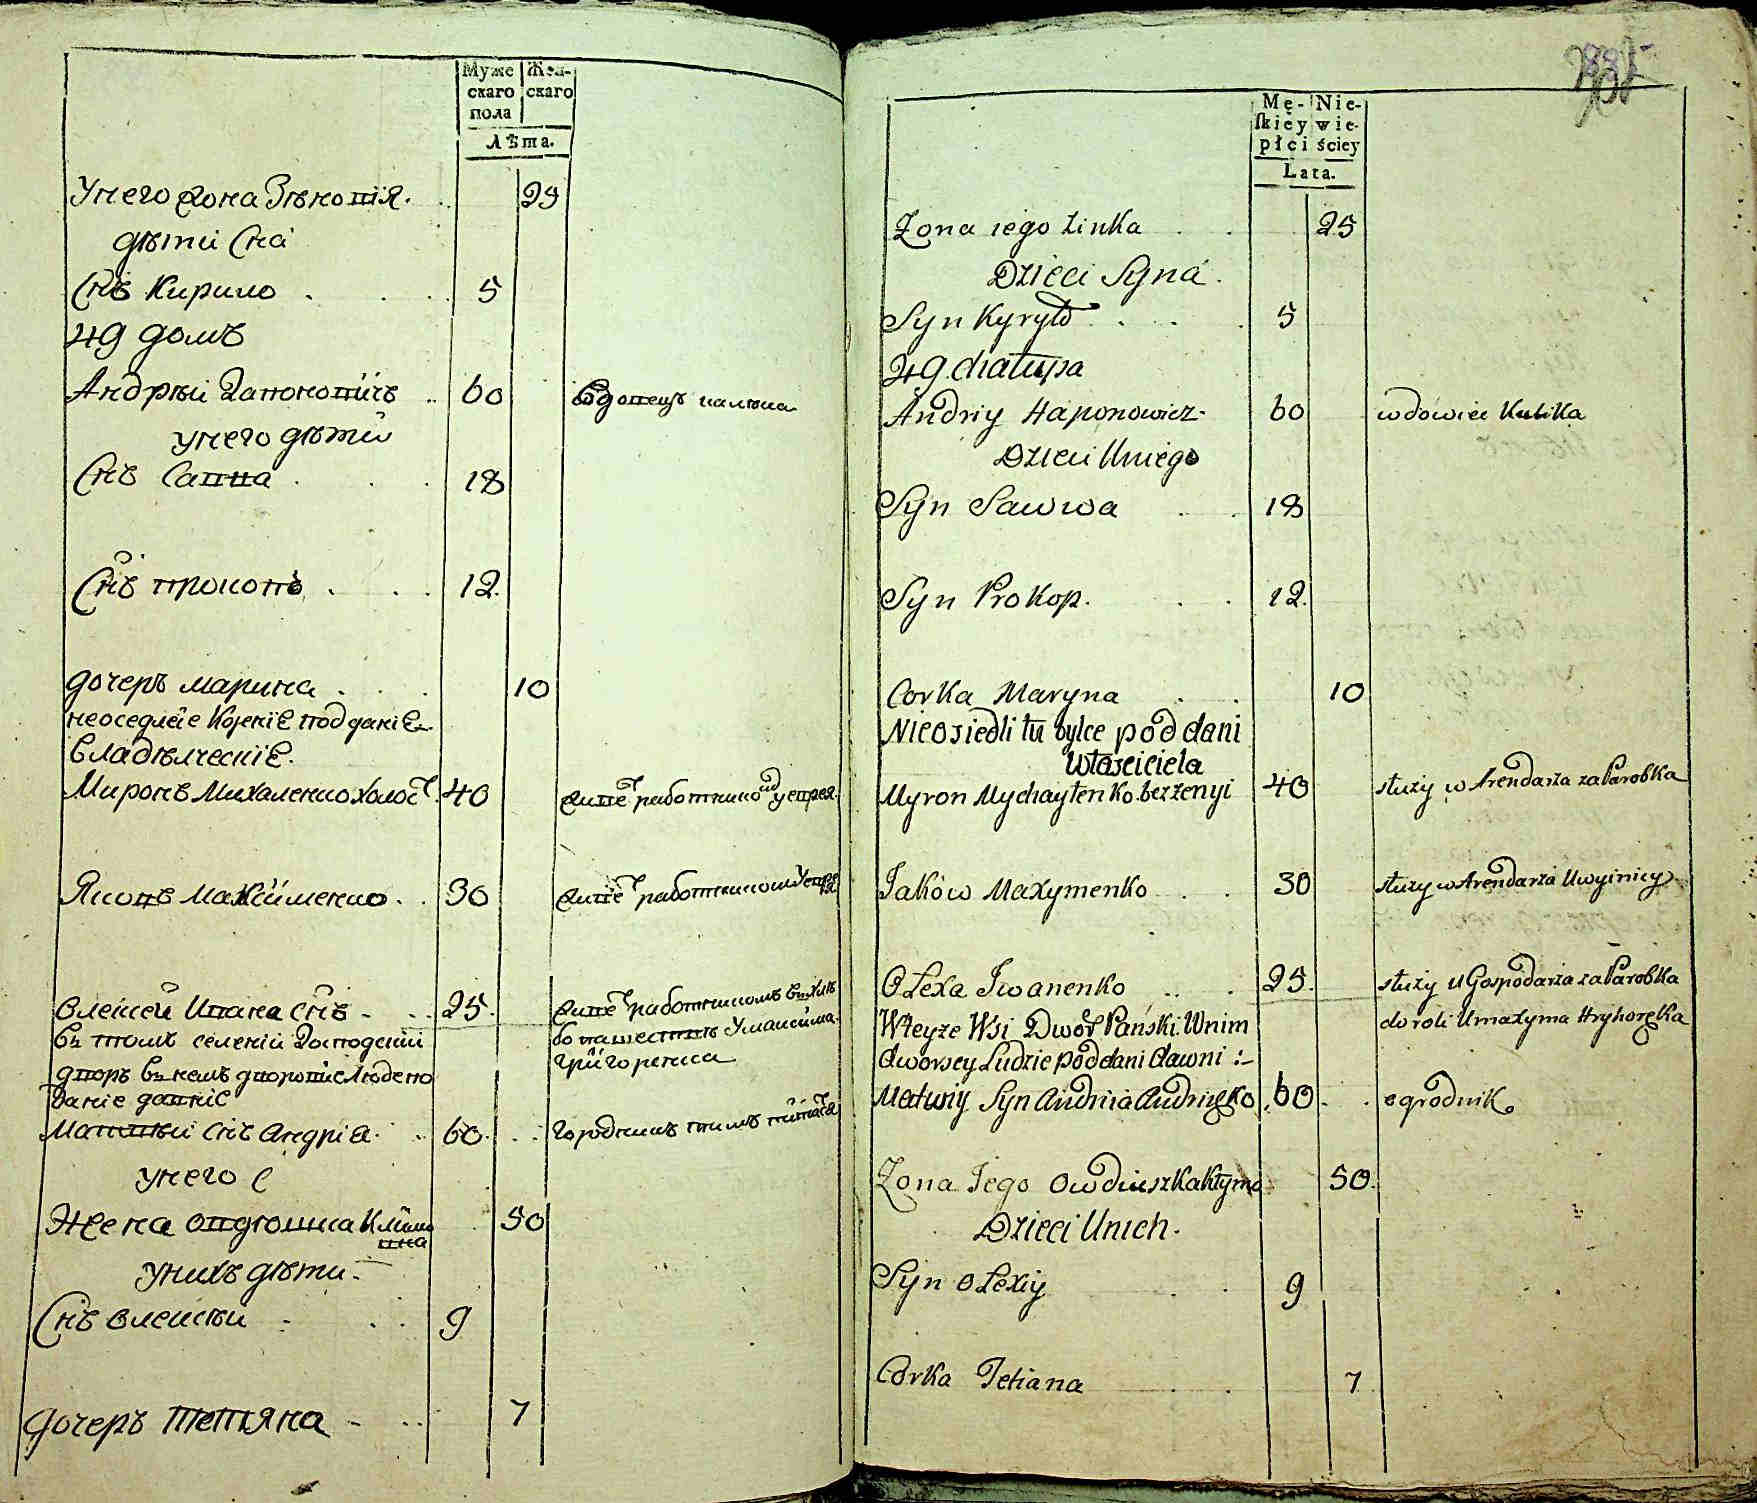 Муже Жен-
скаго скаго
пола
Лѣта.
Унего жона Зѣновия. 25
дѣти Сна
Снъ Кирило 5
49 домъ
Андрѣй Гапоновичъ 60 Вдовецъ калѣка
унего дѣти
Снъ Савва 18
Снъ прокопъ 12.
дочеръ марина 10
неоседлые подданіе
владѣлческіе.
Миронъ Михаленко холост. 40
Яковъ Максименко 30
Алексѣй Ивана снъ 25.
въ томъ селеніи Господскій
дворъ в немъ дворовіе Люде по
даніе давніе
Матвѣй снъ Андрія 60.
унего
Жена овдюшка Климо
вна 50
Унихъ дѣти.
Снъ Алексѣй 9
дочеръ Тетяна 7
Mę- Nie-
skiey wie-
płci ściey
Lata.
Zona iego Zinka 25
Dzieci Syna
Syn Kyryło 5
49 chałupa
Andriy Haponowicz 60 wdowiec Kalika
Dzieci Uniego
Syn Sawwa 18
Syn Prokop. 12.
Corka Maryna 10
Nieosiedli tu tylce pod dani
Właściciela
Myron Mychayłenko bezzenyi 40 słuzy w Arendarza za Parobka
Jaków Maxymenko 30 słuzy w Arendarza Uwyinicy
Olexa Iwanenko 25. słuzy u Gospodarza za Parobka
do roli Umaxyma Hryhoręka
Wteyze Wsi Dwor Pański Wnim
dworscy Ludzie poddani dawni :-
Matwiy Syn Andriia Andrzęko 60 ogrodnik
Zona Jego Owdiuszka Kłymo 50.
Dzieci Unich.
Syn Olexiy 9
Corka Tetiana 7